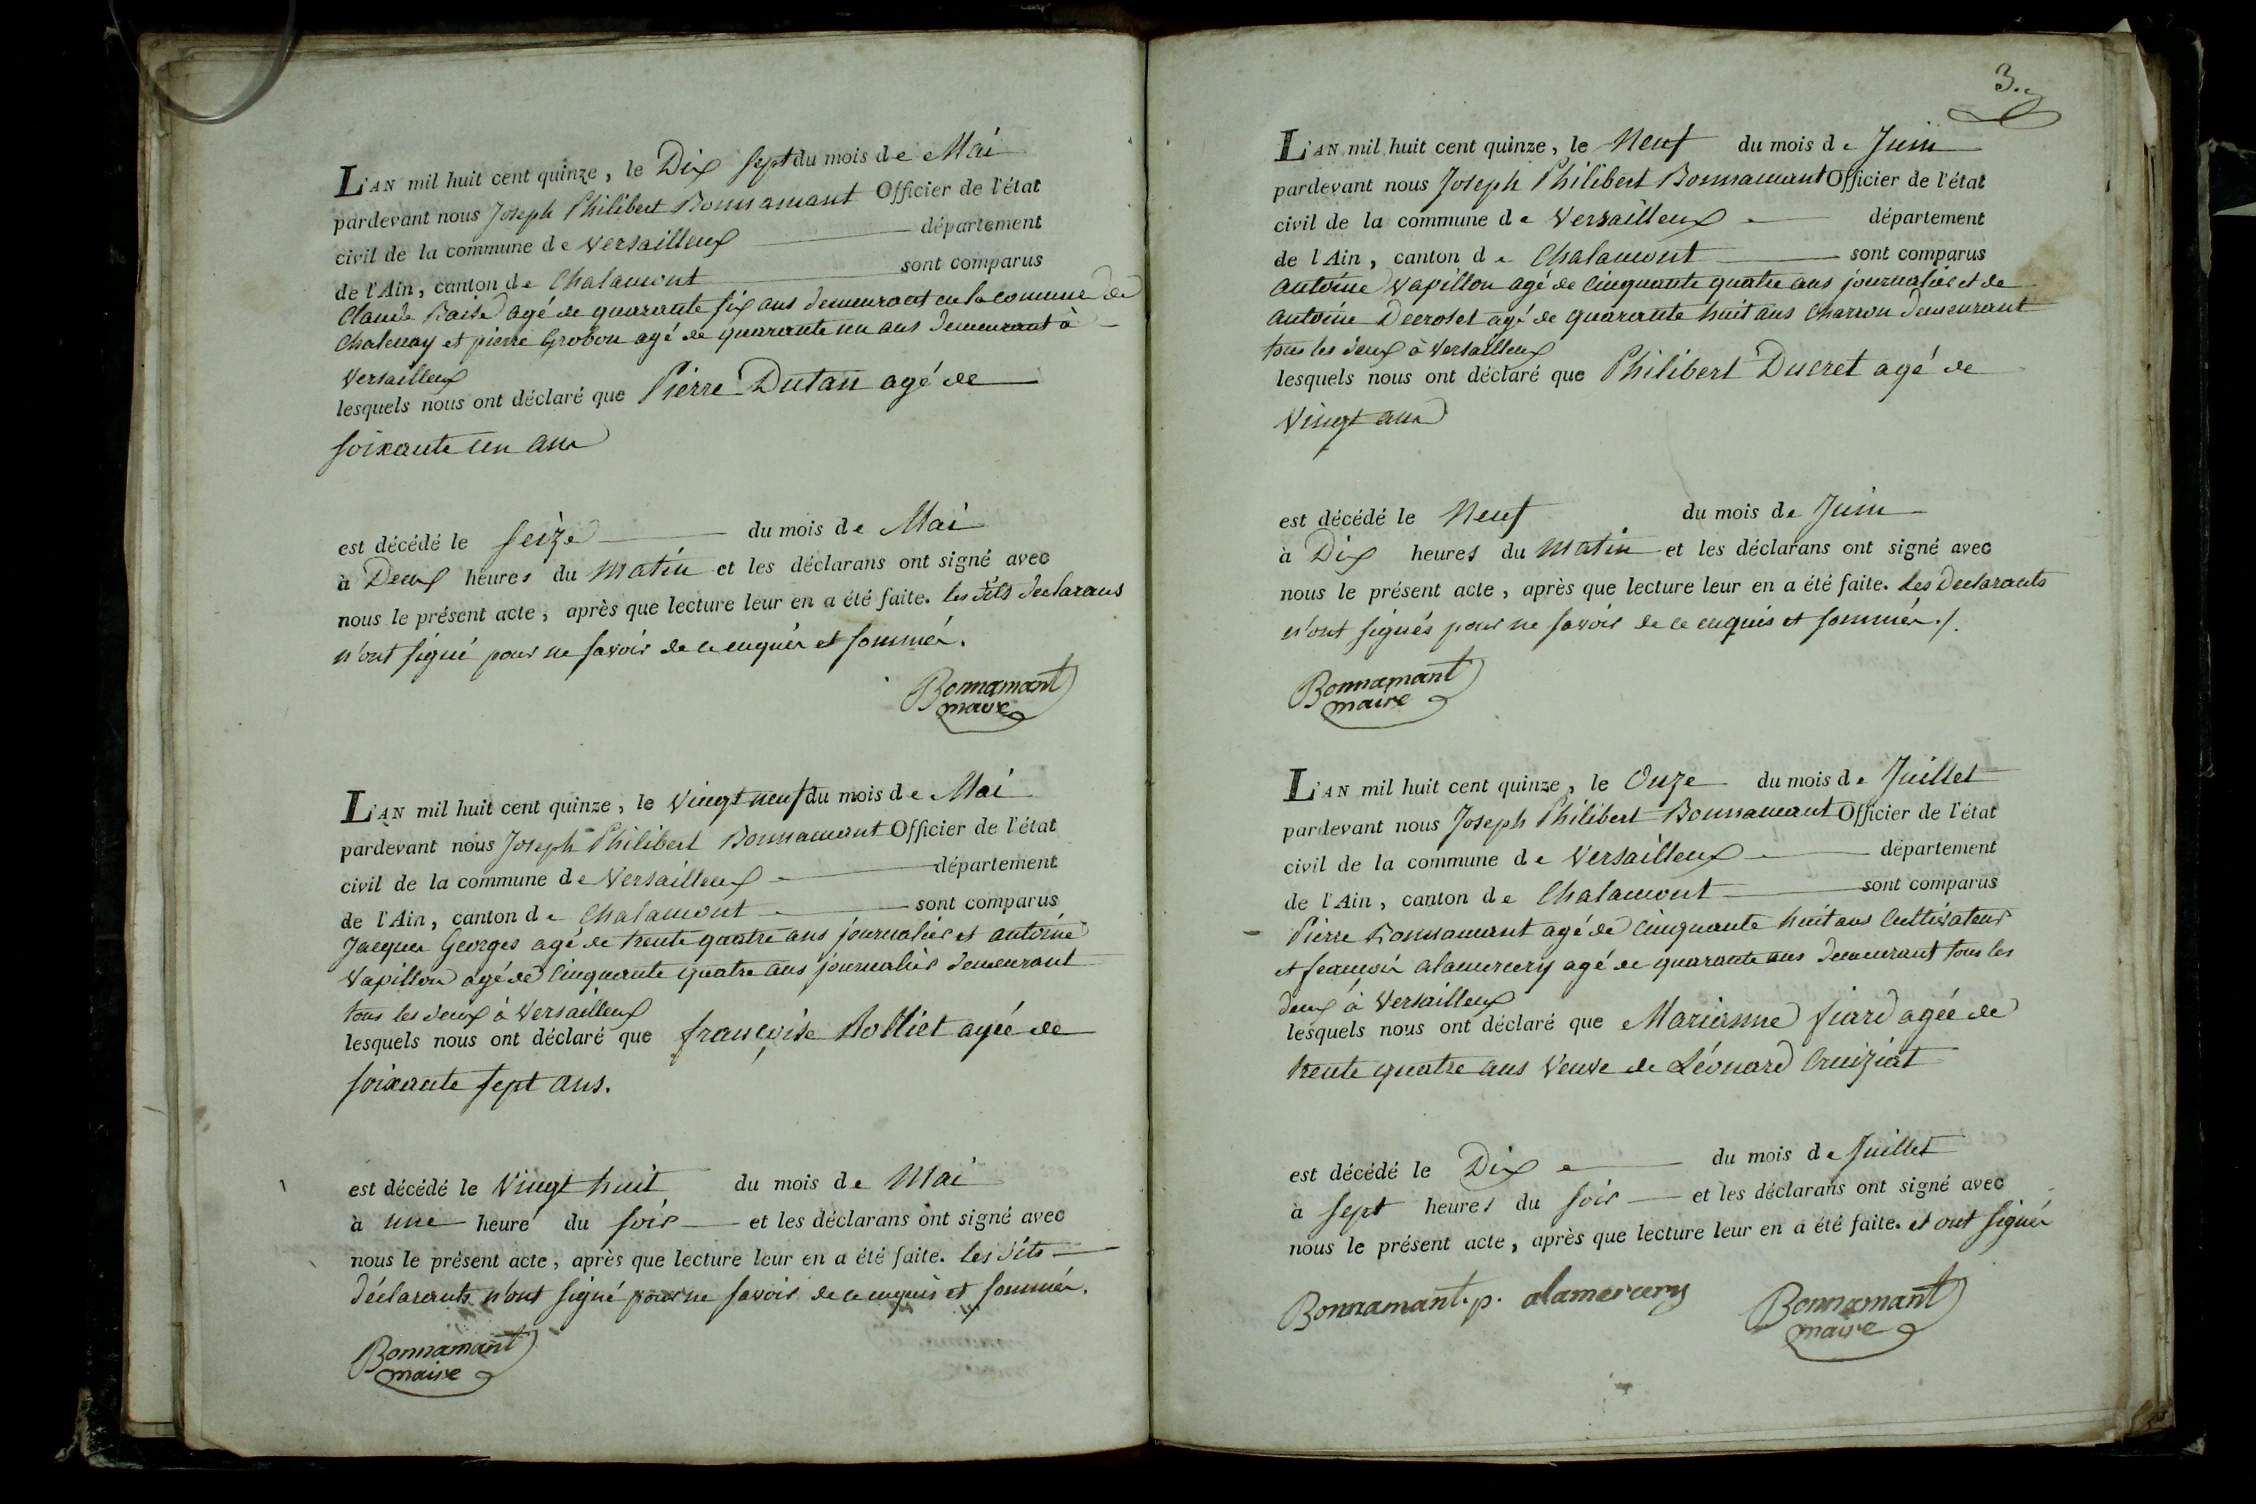 L'AN mil huit cent quinze, le Dix sept du mois de Mai
pardevant nous Joseph Philibert Bonnamant Officier de l'état
civil de la commune de Versailleux département
de l'Ain, canton de Chalamont sont comparus
Claude agé de quarante six ans demeurant en la comune de
Chatenay et pierre Grobon agé de quarante un ans demeurant à
Versailleux
lesquels nous ont déclaré que Pierre Dutan agé de
soixante un ans
est décédé le seize du mois de Mai
à Deux heures du matin et les déclarans ont signé avec
nous le présent acte, après que lecture leur en a été faite. les dits declarans
n'ont signé pour ne savoir de ce enquis et sommés.
Bonnamant
maire
L'AN mil huit cent quinze, le vingt neuf du mois de Mai
pardevant nous Joseph Philibert Bonnamant Officier de l'état
civil de la commune de Versailleux département
de l'Ain, canton de Chalamont sont comparus
Jacques Georges agé de trente quatre ans journalier et antoine
Vapillon agé de cinquante quatre ans journalier demeurant
tous les deux à Versailleux
lesquels nous ont déclaré que françoise Rolliet agée de
soixante sept ans.
est décédé le Vingt huit du mois de Mai
à une heure du soir et les déclarans ont signé avec
nous le présent acte, après que lecture leur en a été faite. les dits
déclarants n'ont signé pour ne savoir de ce enquis et sommés.
Bonnamant
maire
3.
L'AN mil huit cent quinze, le Neuf du mois de Juin
pardevant nous Joseph Philibert Bonnamant Officier de l'état
civil de la commune de Versailleux département
de l'Ain, canton de Chalamont sont comparus
antoine Vapillon agé de cinquante quatre ans journalier et de
antoine Decroset agé de quarante huit ans charron demeurant
tous les deux à Versailleux
lesquels nous ont déclaré que Philibert Ducret agé de
Vingt ans
est décédé le Neuf du mois de Juin
à Dix heures du matin et les déclarans ont signé avec
nous le présent acte, après que lecture leur en a été faite. Les Declarants
n'ont signés pour ne savoir de ce enquis et sommés./.
Bonnamant
maire
L'AN mil huit cent quinze, le Onze du mois de Juillet
pardevant nous Joseph Philibert Bonnamant Officier de l'état
civil de la commune de Versailleux département
de l'Ain, canton de Chalamont sont comparus
Pierre Bonnamant agé de cinquante huit ans Cultivateur
et françois alamercery agé de quarante ans demeurant tous les
deux à Versailleux
lesquels nous ont déclaré que Marianne fiard agée de
trente quatre ans veuve de Léonard Cruiziat
est décédé le Dix du mois de Juillet
à sept heures du soir et les déclarans ont signé avec
nous le présent acte, après que lecture leur en a été faite. et ont signés
Bonnamant. p. alamercery Bonnamant
maire